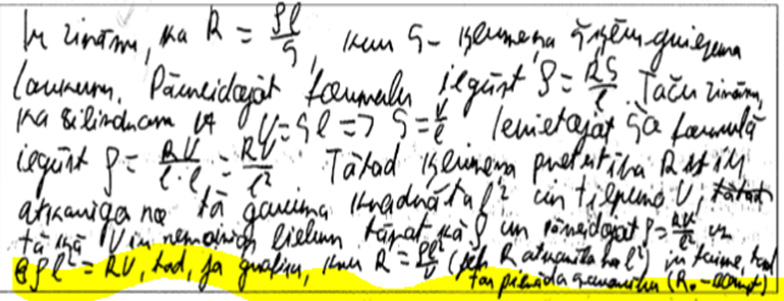 Ir zināms, ka R = ρl/S, kur S - ķermeņa šķērsgriezuma
laukums. Pārveidojot formulu iegūst ρ = RS/l. Taču zināms,
ka cilindram V = Sl => S = V/l Ievietojot šo formulā
iegūst ρ = RV/l·l = RV/l². Tātad ķermeņa pretestība R
atkarīga no tā garuma kvadrāta l² un tilpuma V,
tā kā V ir nemainīgs lielums tāpat kā ρ un pārveidojot ρ = RV/l²
ρl² = RV, tad, ja grafiks, kur R = ρl²/V (R atkarība no l²) ir taisne, tad
tas pierāda